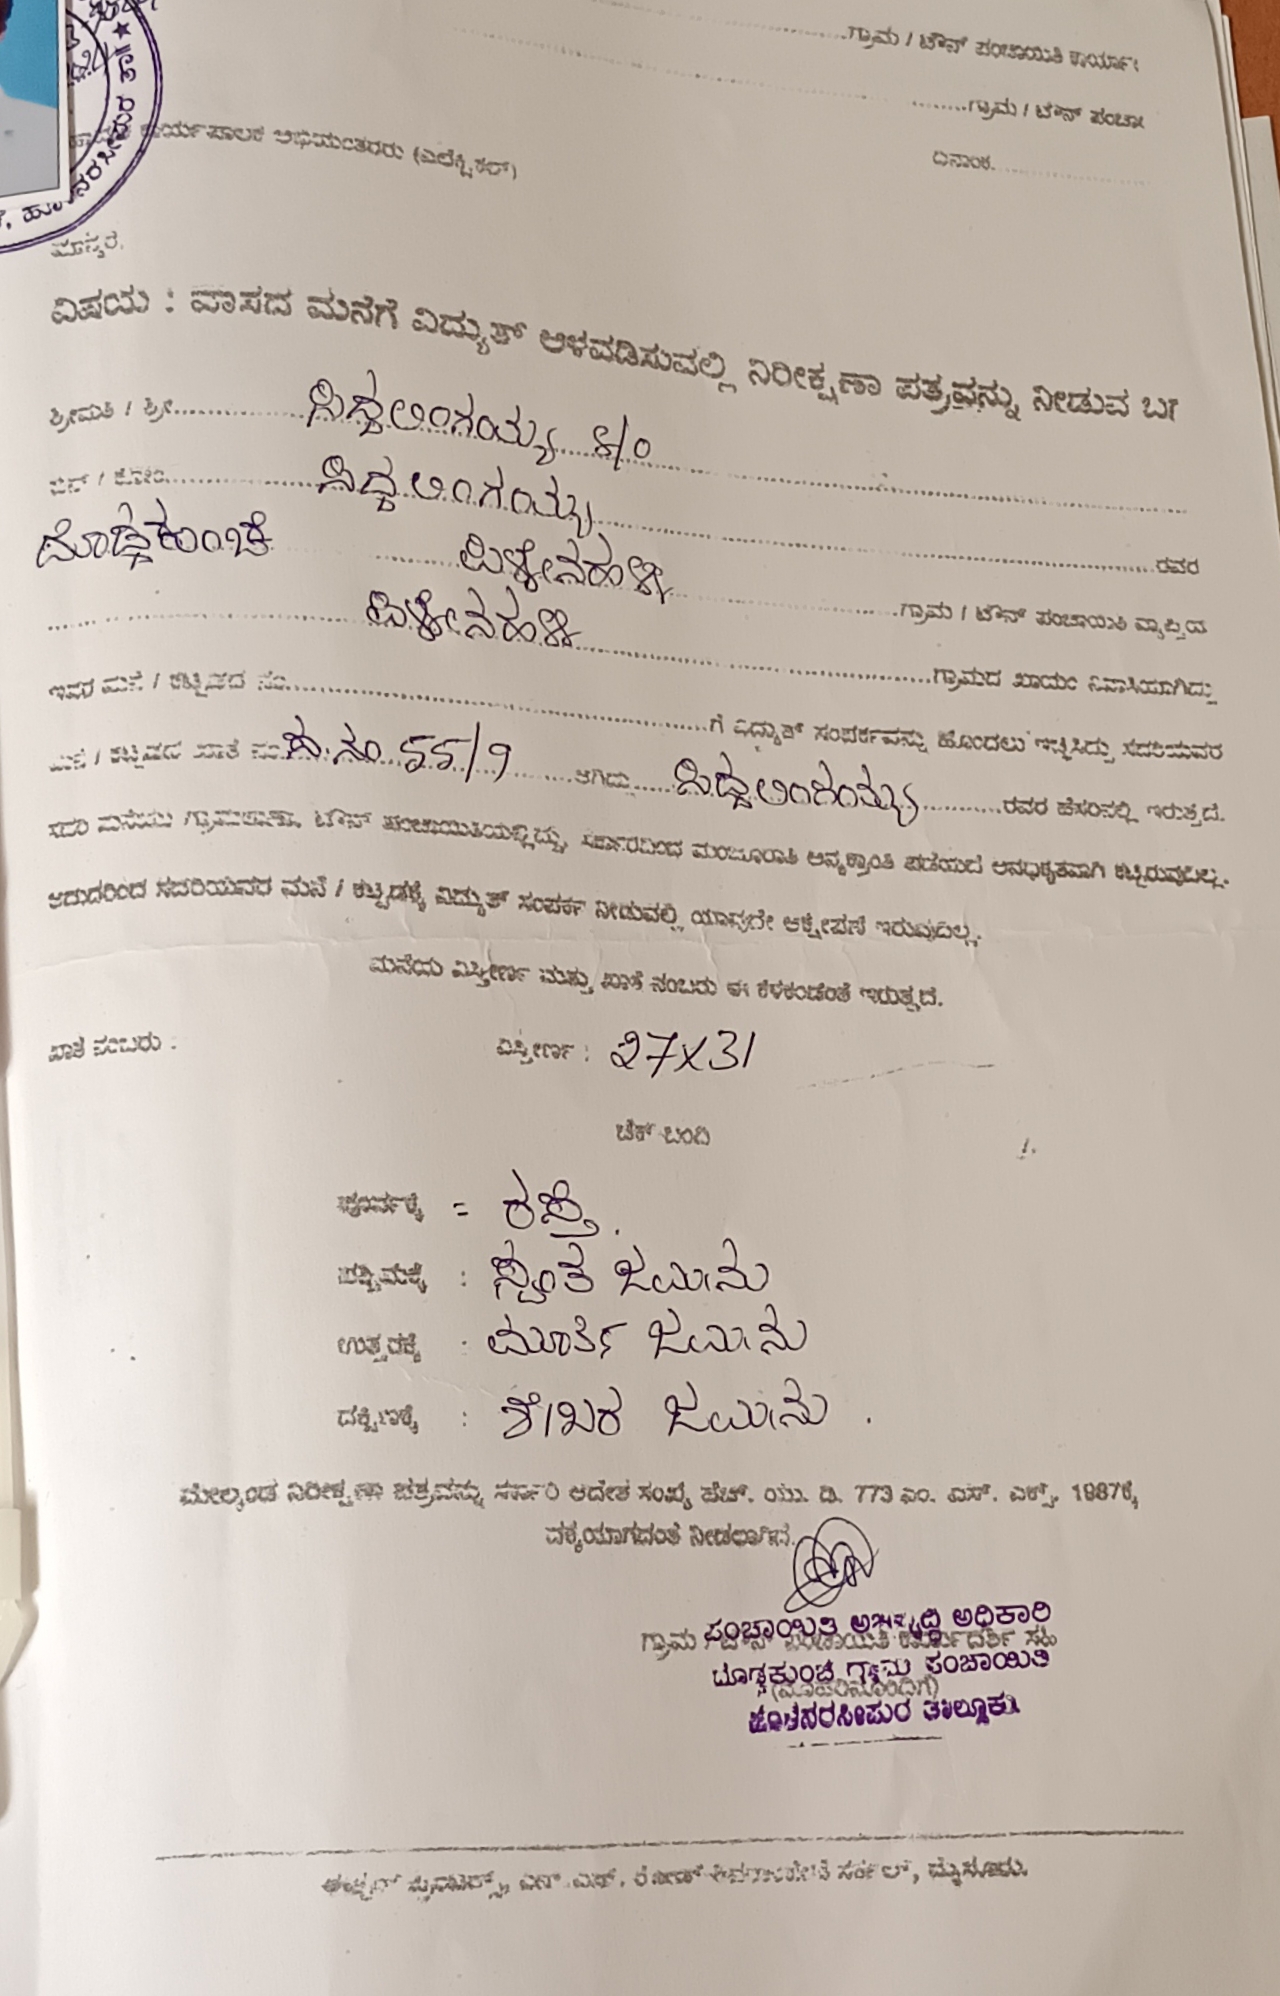 ಗ್ರಾಮ / ಟೌನ್ ಪಂಚಾಯಿತಿ ಕಾರ್ಯಾ
ಗ್ರಾಮ / ಟೌನ್ ಪಂಚಾ
ದಿನಾಂಕ
ಕಾರ್ಯಪಾಲಕ ಅಭಿಯಂತರರು (ಎಲೆಕ್ಟ್ರಿಕಲ್)
ಮಾನ್ಯರೆ,
ವಿಷಯ : ವಾಸದ ಮನೆಗೆ ವಿದ್ಯುತ್ ಅಳವಡಿಸುವಲ್ಲಿ ನಿರೀಕ್ಷಣಾ ಪತ್ರವನ್ನು ನೀಡುವ ಬಗ
ಶ್ರೀಮತಿ / ಶ್ರೀ ಸಿದ್ದಲಿಂಗಯ್ಯ S/O
ಬಿನ್ / ಕೋಂ ಸಿದ್ದಲಿಂಗಯ್ಯ ರವರ
ದೊಡ್ಡಕುಂಚೆ ಪಿಳ್ಳೇನಹಳ್ಳಿ ಗ್ರಾಮ / ಟೌನ್ ಪಂಚಾಯಿತಿ ವ್ಯಾಪ್ತಿಯ
ಪಿಳ್ಳೇನಹಳ್ಳಿ ಗ್ರಾಮದ ಖಾಯಂ ನಿವಾಸಿಯಾಗಿದ್ದು
ಇವರ ಮನೆ / ಕಟ್ಟಡದ ನಂ ಗೆ ವಿದ್ಯುತ್ ಸಂಪರ್ಕವನ್ನು ಹೊಂದಲು ಇಚ್ಛಿಸಿದ್ದು ಸದರಿಯವರ
ಮನೆ / ಕಟ್ಟಡದ ಖಾತೆ ನಂ 55/9 ಆಗಿದ್ದು ಸಿದ್ದಲಿಂಗಯ್ಯ ರವರ ಹೆಸರಿನಲ್ಲಿ ಇರುತ್ತದೆ.
ಸದರಿ ಮನೆಯು ಟೌನ್ ಪಂಚಾಯಿತಿಯಲ್ಲಿದ್ದು, ಸರ್ಕಾರದಿಂದ ಮಂಜೂರಾತಿ ಅನ್ಯಕ್ರಾಂತಿ ಪಡೆಯದೆ ಅನಧಿಕೃತವಾಗಿ ಕಟ್ಟಿರುವುದಿಲ್ಲ.
ಆದುದರಿಂದ ಸದರಿಯವರ ಮನೆ / ಕಟ್ಟಡಕ್ಕೆ ವಿದ್ಯುತ್ ಸಂಪರ್ಕ ನೀಡುವಲ್ಲಿ ಯಾವುದೇ ಆಕ್ಷೇಪಣೆ ಇರುವುದಿಲ್ಲ.
ಮನೆಯ ವಿಸ್ತೀರ್ಣ ಮತ್ತು ಖಾತೆ ನಂಬರು ಈ ಕೆಳಕಂಡಂತೆ ಇರುತ್ತದೆ.
ಖಾತೆ ನಂಬರು : ವಿಸ್ತೀರ್ಣ : 27X31
ಚೆಕ್ ಬಂದಿ
ಪೂರ್ವಕ್ಕೆ = ರಸ್ತೆ.
ಪಶ್ಚಿಮಕ್ಕೆ : ಸ್ವಂತ ಜಮೀನು
ಉತ್ತರಕ್ಕೆ : ಮೂರ್ತಿ ಜಮೀನು
ದಕ್ಷಿಣಕ್ಕೆ : ಶೇಖರ ಜಮೀನು.
ಮೇಲ್ಕಂಡ ನಿರೀಕ್ಷಣಾ ಪತ್ರವನ್ನು ಸರ್ಕಾರಿ ಆದೇಶ ಸಂಖ್ಯೆ ಹೆಚ್. ಯು. ಡಿ. 773 ಎಂ. ಎನ್. ಎಕ್ಸ್. 1987ಕ್ಕೆ
ನೀಡಲಾಗಿದೆ.
ಪಂಚಾಯಿತಿ ಅಭಿವೃದ್ಧಿ ಅಧಿಕಾರಿ
ಗ್ರಾಮ / ಟೌನ್ ಪಂಚಾಯಿತಿ ಕಾರ್ಯದರ್ಶಿ ಸಹಿ
ದೊಡ್ಡಕುಂಚೆ ಗ್ರಾಮ ಪಂಚಾಯಿತಿ
(ಮೊಹರಿನೊಂದಿಗೆ)
ಹೊಳೆನರಸೀಪುರ ತಾಲ್ಲೂಕು
ಸರ್ಕಲ್, ಮೈಸೂರು.